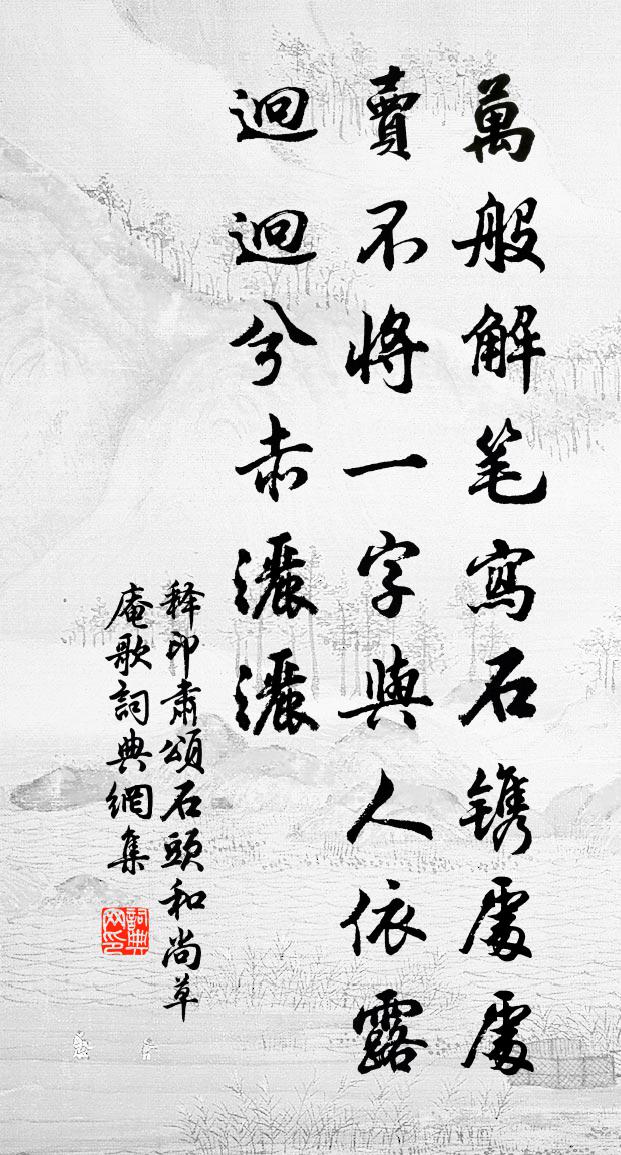 萬般解笔寫石镌處處
賣不將一字與人依露
迥迥兮赤灑灑
释印肃頌石頭和尚草
庵歌詞典網集
詞典网印